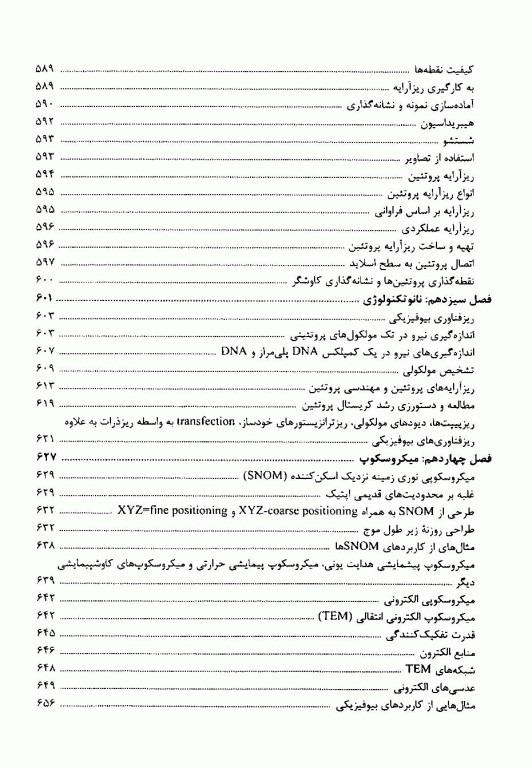 کیفیت نقطه‌ها ........ ۵۸۹
به کارگیری ریزآرایه ........ ۵۸۹
آماده‌سازی نمونه و نشانه‌گذاری ........ ۵۹۰
هیبریداسیون ........ ۵۹۲
شستشو ........ ۵۹۳
استفاده از تصاویر ........ ۵۹۳
ریزآرایه پروتئین ........ ۵۹۴
انواع ریزآرایه پروتئین ........ ۵۹۵
ریزآرایه بر اساس فراوانی ........ ۵۹۵
ریزآرایه عملکردی ........ ۵۹۶
تهیه و ساخت ریزآرایه پروتئین ........ ۵۹۶
اتصال پروتئین به سطح اسلاید ........ ۵۹۷
نقطه‌گذاری پروتئین‌ها و نشانه‌گذاری کاوشگر ........ ۶۰۰
فصل سیزدهم: نانوتکنولوژی ........ ۶۰۱
ریزفناوری بیوفیزیکی ........ ۶۰۳
اندازه‌گیری نیرو در تک مولکول‌های پروتئینی ........ ۶۰۳
اندازه‌گیری‌های نیرو در یک کمپلکس DNA پلی‌مراز و DNA ........ ۶۰۷
تشخیص مولکولی ........ ۶۰۹
ریزآرایه‌های پروتئین و مهندسی پروتئین ........ ۶۱۳
مطالعه و دستورزی رشد کریستال پروتئین ........ ۶۱۹
ریزپیپت‌ها، دیودهای مولکولی، ریزترانزیستورهای خودساز، transfection به واسطه ریزذرات به علاوه
ریزفناوری‌های بیوفیزیکی ........ ۶۲۱
فصل چهاردهم: میکروسکوپ ........ ۶۲۷
میکروسکوپی نوری زمینه نزدیک اسکن‌کننده (SNOM) ........ ۶۲۹
غلبه بر محدودیت‌های قدیمی اپتیک ........ ۶۲۹
طرحی از SNOM به همراه XYZ-coarse positioning و XYZ=fine positioning ........ ۶۳۲
طراحی روزنهٔ زیر طول موج ........ ۶۳۲
مثال‌های از کاربردهای SNOMها ........ ۶۳۸
میکروسکوپ پیشمایشی هدایت یونی، میکروسکوپ پیمایشی حرارتی و میکروسکوپ‌های کاوشپیمایشی
دیگر ........ ۶۳۹
میکروسکوپی الکترونی ........ ۶۴۲
میکروسکوپ الکترونی انتقالی (TEM) ........ ۶۴۲
قدرت تفکیک‌کنندگی ........ ۶۴۵
منابع الکترون ........ ۶۴۶
شبکه‌های TEM ........ ۶۴۸
عدسی‌های الکترونی ........ ۶۴۹
مثال‌هایی از کاربردهای بیوفیزیکی ........ ۶۵۶